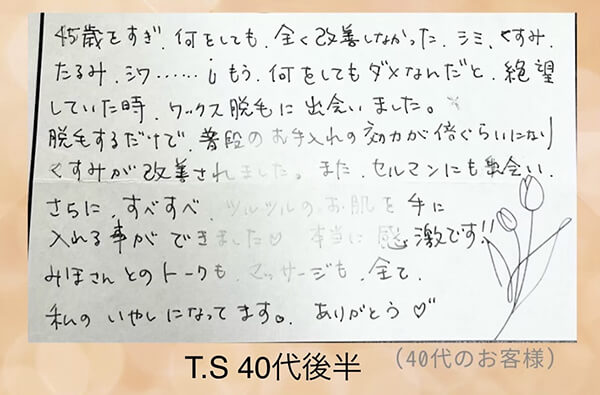 45歳をすぎ、何をしても、全く改善しなかった、シミ、くすみ、
たるみ、シワ……。もう、何をしてもダメなんだと、絶望
していた時、ワックス脱毛に出会いました。
脱毛するだけで、普段のお手入れの効力が倍ぐらいになり
くすみが改善されました。また、セルマンにも出会い、
さらに、すべすべ、ツルツルのお肌を手に
入れる事ができました♡ 本当に感激です!!
みほさんとのトークも、マッサージも、全て、
私のいやしになってます。ありがとう♡"
T.S 40代後半
(40代のお客様)